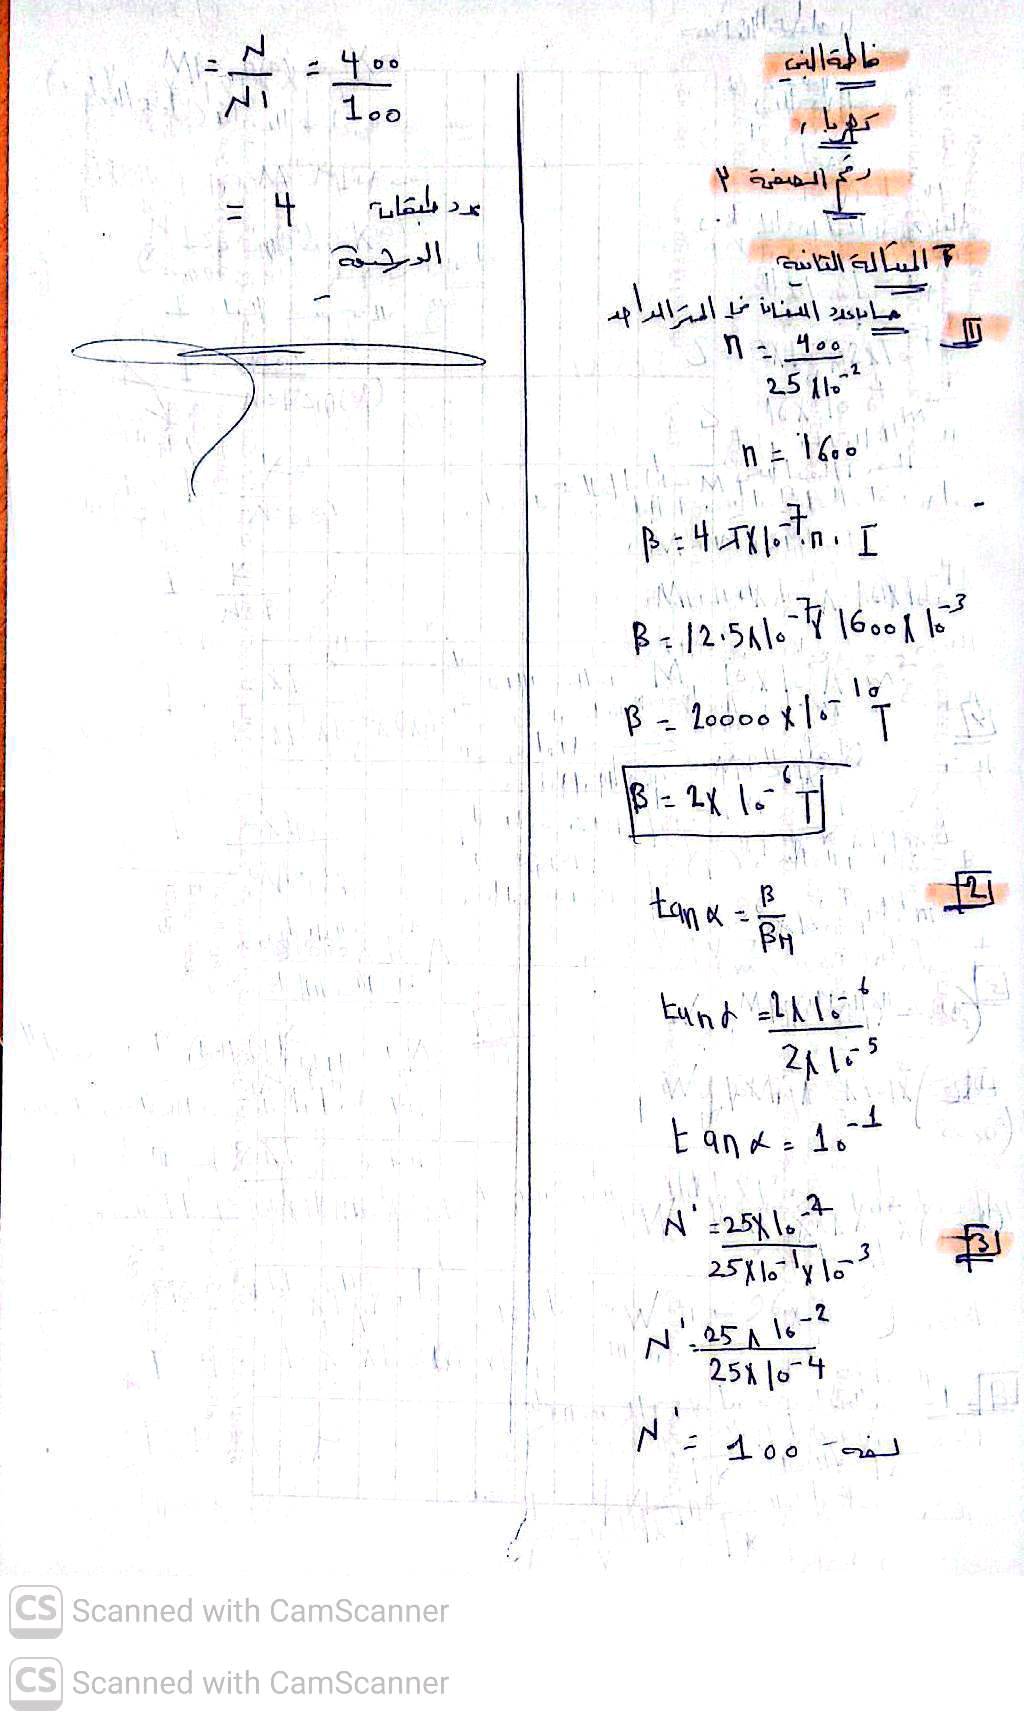 فاطمة البني
كهرباء
رقم الصفحة ٣
المسألة الثانية
1 حساب عدد اللفات في المتر الواحد
n = 400 / 25 × 10⁻²
n = 1600
B = 4π × 10⁻⁷ . n . I
B = 12.5 × 10⁻⁷ × 1600 × 10⁻³
B = 20000 × 10⁻¹⁰ T
B = 2 × 10⁻⁶ T
2 tan α = B / BH
tan α = 2 × 10⁻⁶ / 2 × 10⁻⁵
tan α = 10⁻¹
3 N' = 25 × 10⁻² / 25 × 10⁻¹ × 10⁻³
N' = 25 × 10⁻² / 25 × 10⁻⁴
N' = 100 لفة
= N / N' = 400 / 100
عدد طبقات = 4
الوشيعة
CS Scanned with CamScanner
CS Scanned with CamScanner